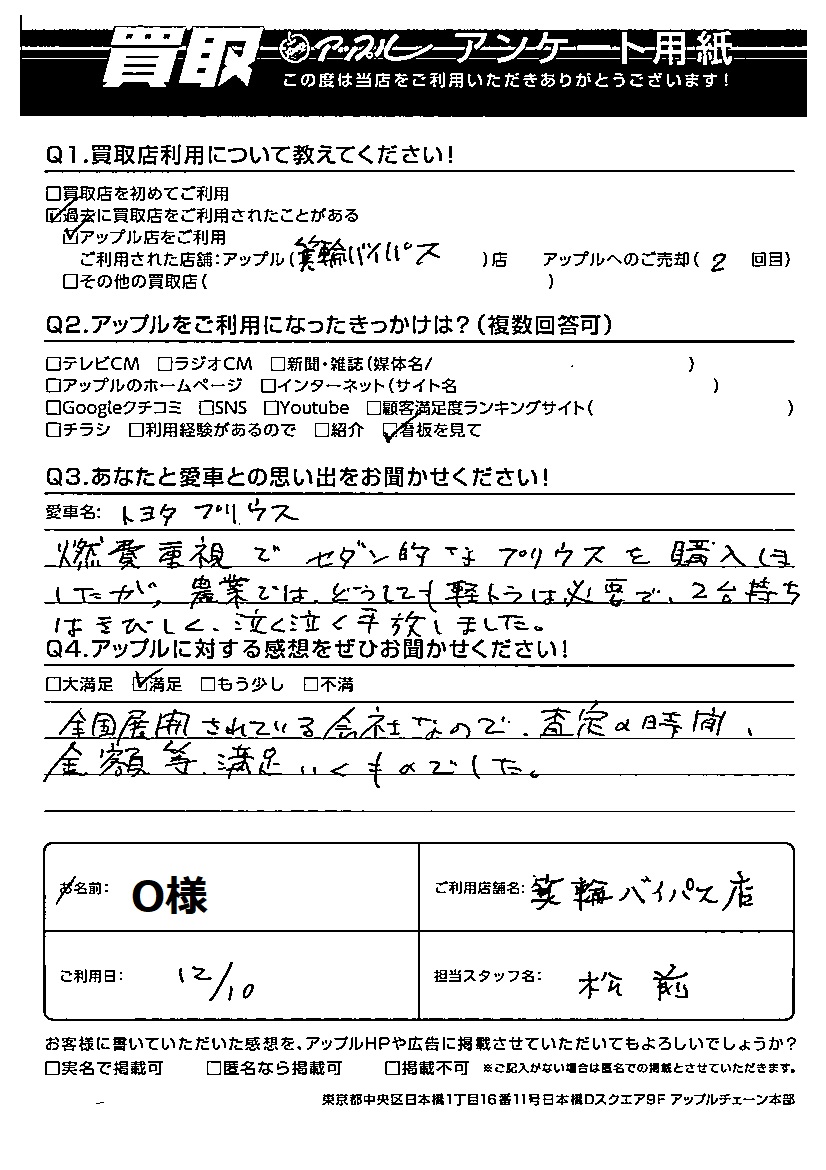 買取 アップル アンケート用紙
この度は当店をご利用いただきありがとうございます!
Q1.買取店利用について教えてください!
□買取店を初めてご利用
☑過去に買取店をご利用されたことがある
☑アップル店をご利用
ご利用された店舗:アップル(箕輪バイパス )店 アップルへのご売却( 2 回目)
□その他の買取店( )
Q2.アップルをご利用になったきっかけは?(複数回答可)
□テレビCM □ラジオCM □新聞・雑誌(媒体名/ )
□アップルのホームページ □インターネット(サイト名 )
□Googleクチコミ □SNS □Youtube □顧客満足度ランキングサイト( )
□チラシ □利用経験があるので □紹介 ☑看板を見て
Q3.あなたと愛車との思い出をお聞かせください!
愛車名: トヨタ プリウス
燃費重視で セダン的な プリウスを 購入しま
したが、農業では、どうしても軽トラは必要で、2台持ち
はきびしく、泣く泣く手放しました。
Q4.アップルに対する感想をぜひお聞かせください!
□大満足 ☑満足 □もう少し □不満
全国展開されている会社なので、査定の時間、
金額等、満足いくものでした。
お名前: O様 ご利用店舗名: 箕輪バイパス店
ご利用日: 12/10 担当スタッフ名: 松前
お客様に書いていただいた感想を、アップルHPや広告に掲載させていただいてもよろしいでしょうか?
□実名で掲載可 □匿名なら掲載可 □掲載不可 ※ご記入がない場合は匿名での掲載とさせていただきます。
東京都中央区日本橋1丁目16番11号日本橋Dスクエア9F アップルチェーン本部